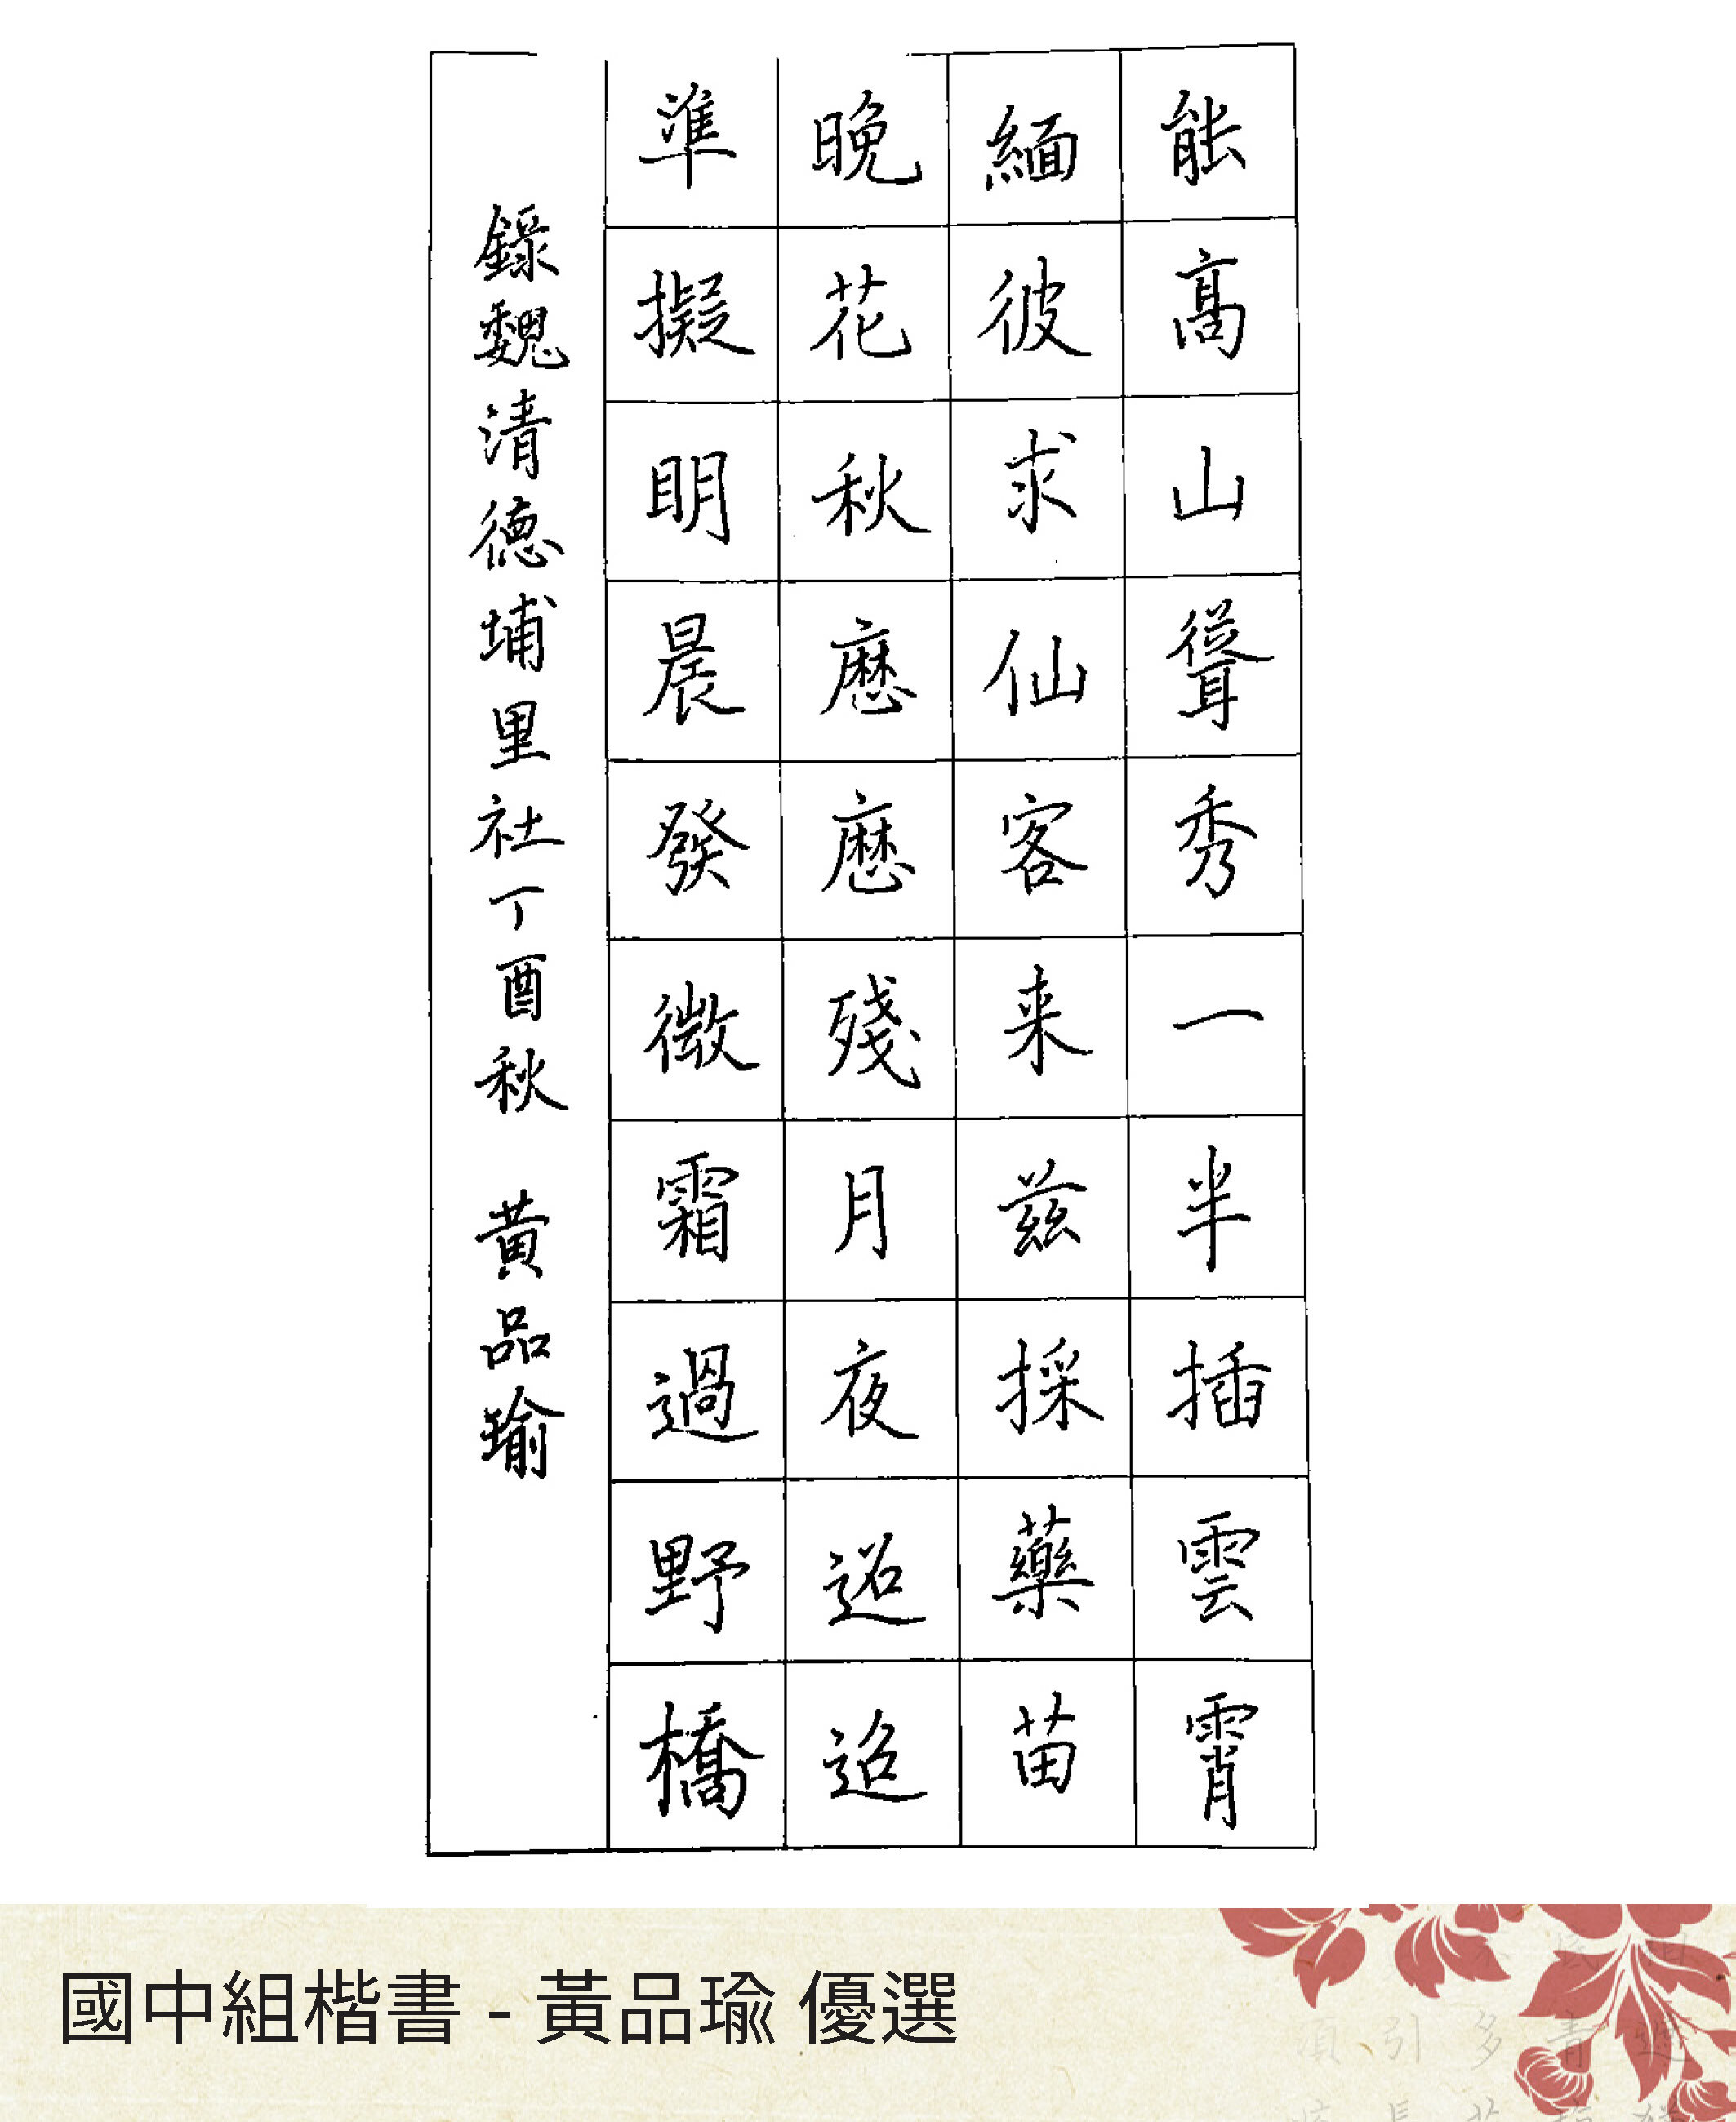 能高山聳秀一半插雲霄
緬彼求仙客来茲採藥苗
晚花秋懕懕殘月夜迢迢
準擬明晨發微霜過野橋
錄魏清德埔里社丁酉秋 黃品瑜
國中組楷書 - 黃品瑜 優選